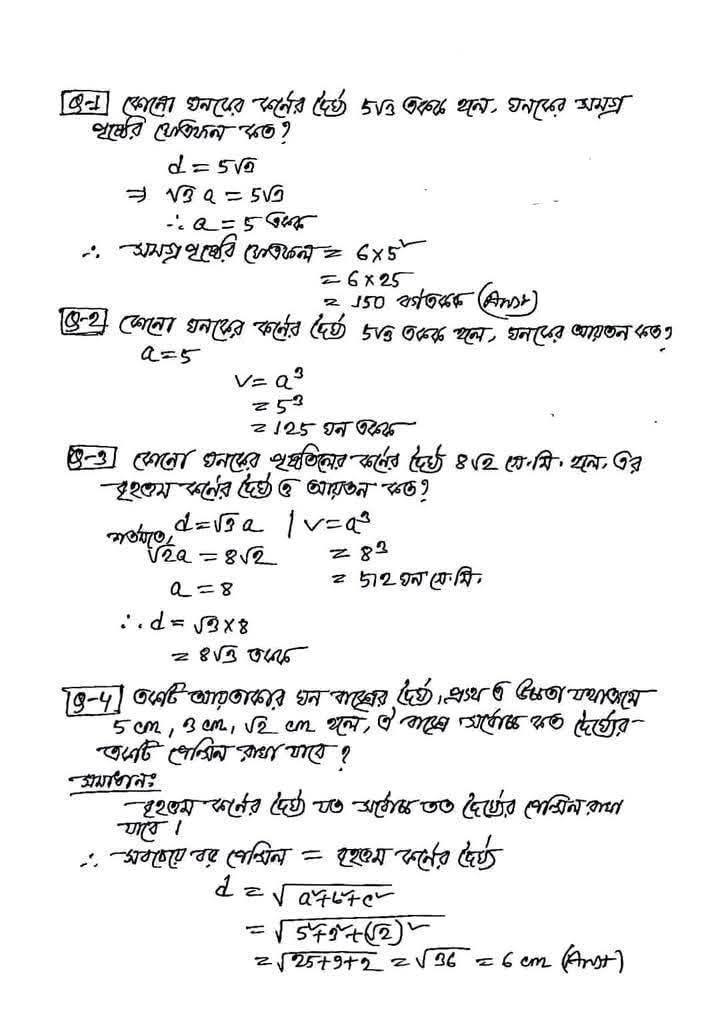 Q-1 কোনো ঘনকের কর্ণের দৈর্ঘ্য 5√3 একক হলে, ঘনকের সমগ্র
পৃষ্ঠের ক্ষেত্রফল কত?
d = 5√3
⇒ √3 a = 5√3
∴ a = 5 একক
∴ সমগ্র পৃষ্ঠের ক্ষেত্রফল = 6×5²
= 6×25
= 150 বর্গ একক (Ans)
Q-2 কোনো ঘনকের কর্ণের দৈর্ঘ্য 5√3 একক হলে, ঘনকের আয়তন কত?
a = 5
V = a³
= 5³
= 125 ঘন একক
Q-3 কোনো ঘনকের পৃষ্ঠতলের কর্ণের দৈর্ঘ্য 8√2 সে.মি. হলে, এর
বৃহত্তম কর্ণের দৈর্ঘ্য ও আয়তন কত?
শর্তমতে, d = √3 a | V = a³
√2a = 8√2 = 8³
a = 8 = 512 ঘন সে.মি.
∴ d = √3×8
= 8√3 একক
Q-4 একটি আয়তাকার ঘন বাক্সের দৈর্ঘ্য, প্রস্থ ও উচ্চতা যথাক্রমে
5 cm, 3 cm, √2 cm হলে, ঐ বাক্সে সর্বোচ্চ কত দৈর্ঘ্যের
একটি পেন্সিল রাখা যাবে?
সমাধানঃ
বৃহত্তম কর্ণের দৈর্ঘ্য যত সর্বোচ্চ তত দৈর্ঘ্যের পেন্সিল রাখা
যাবে।
∴ সবচেয়ে বর পেন্সিল = বৃহত্তম কর্ণের দৈর্ঘ্য
d = √a²+b²+c²
= √5²+3²+(√2)²
= √25+9+2 = √36 = 6 cm (Ans)